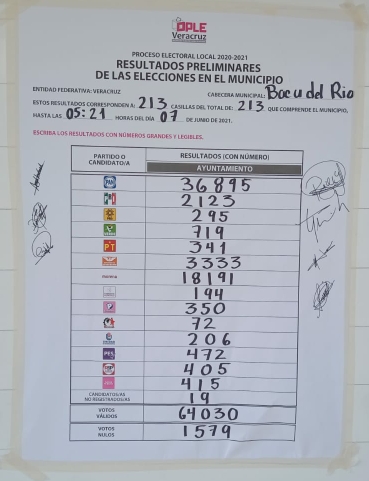 OPLE
Veracruz
PROCESO ELECTORAL LOCAL 2020-2021
RESULTADOS PRELIMINARES
DE LAS ELECCIONES EN EL MUNICIPIO
ENTIDAD FEDERATIVA: VERACRUZ CABECERA MUNICIPAL: Boca del Rio
ESTOS RESULTADOS CORRESPONDEN A: 213 CASILLAS DEL TOTAL DE: 213 QUE COMPRENDE EL MUNICIPIO,
HASTA LAS 05:21 HORAS DEL DÍA 07 DE JUNIO DE 2021.
ESCRIBA LOS RESULTADOS CON NÚMEROS GRANDES Y LEGIBLES.
PARTIDO O CANDIDATO/A RESULTADOS (CON NÚMERO)
AYUNTAMIENTO
PAN 36895
PRI 2123
PRD 295
VERDE 719
PT 341
3333
morena 18191
194
350
72
206
PES 472
405
415
CANDIDATOS/AS NO REGISTRADOS/AS 19
VOTOS VÁLIDOS 64030
VOTOS NULOS 1579